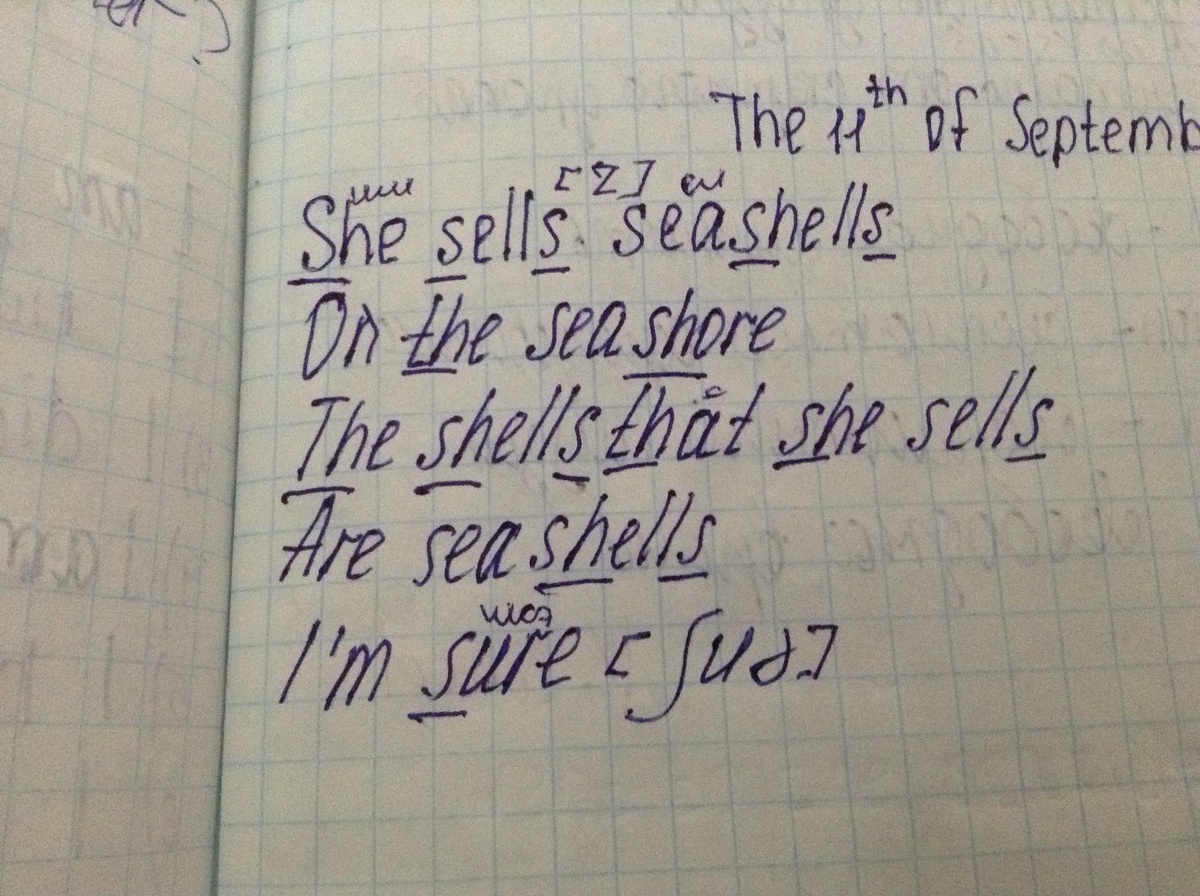 The 11th of Septemb
ши [z] си
She sells seashells
On the seashore
э
The shells that she sells
Are seashells
шоэ
I'm sure [ʃuə]